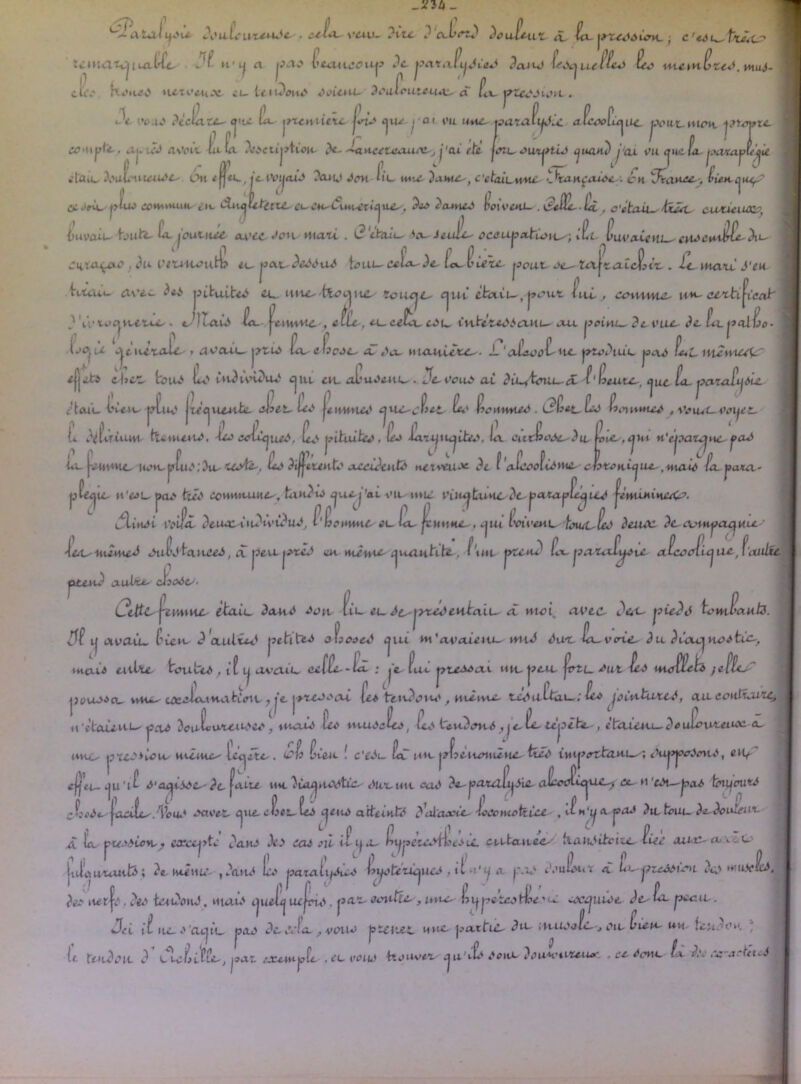 _234_
Paralysie douloureuse. cela veut dire d'abord douleur à la pression ; c'est très
remarquable. Il n'y a pas beaucoup de paralysies dans lesquelles les membres, mus-
cles, troncs nerveux et tendons soient douloureux à la pression.
Je vous déclare que la première fois que j'ai vu une paralysie alcoolique pour mon propre
compte, après avoir lu la description de Lancereaux, j'ai été fort surpris quand j'ai vu que la paraplégie
était douloureuse. En effet, je voyais dans son lit une dame, c'était une Française. En France, bien que
ce soit plus commun en Angleterre et en Amérique, des dames boivent. Celle-là, c'était très curieux,
buvait toute la journée avec son mari. C'était sa seule occupation ; ils buvaient ensemble du
curaçao, du vermouth et par dessus tout cela de la bière pour se rafraîchir. Le mari s'en
tirait avec des pituites et une trogne rouge qui était, pour lui, comme un certificat
d'ivrognerie. Mais la femme, elle, et cela est intéressant au point de vue de la patho-
logie générale, avait pris la chose à sa manière. L'alcool ne produit pas les mêmes
effets chez tous les individus qui en abusent. Je vous ai dit tout à l'heure, que la paralysie
était bien plus fréquente chez les femmes que chez les hommes. Chez les hommes, vous voyez
le délirium tremens, les coliques, les pituites, les laryngites, la cirrhose du foie, qui n'épargne pas
la femme non plus ; du reste, les différents accidents nerveux de l'alcoolisme chronique, mais la para-
plégie n'est pas très commune, tandis que j'ai vu une vingtaine de paraplégies féminines.
Ainsi voilà deux individus, l'homme et la femme, qui boivent tous les deux de compagnie
les mêmes substances, à peu près en même quantité, l'un prend la paralysie alcoolique, l'autre
prend autre chose.
Cette femme était dans son lit et se présentait à moi, avec des pieds tombants.
Il y avait bien d'autres petites choses qui m'avaient mis sur la voie du diagnostic,
mais entre toutes, il y avait celle-là : je lui pressai un peu fort sur les mollets ; elle
poussa une exclamation, je pressai les tendons, même résultat ; les jointures, au contraire,
n'étaient pas douloureuses, mais les muscles, les tendons, je le répète, étaient douloureux à
une pression même légère. Eh bien ! c'est là un phénomène très important ; supposons, en
effet qu'il s'agisse de faire un diagnostic sur un cas de paralysie alcoolique, ce n'est pas toujours
chose facile. Vous savez que chez les gens atteints d'ataxie locomotrice, il n'y a pas du tout de douleur
à la pression, excepté dans des cas où il y a hyperesthésie cutanée transitoire liée aux accès
fulgurants ; de même, dans les paralysies hystériques, il n'y a pas douleur à la pression des muscles,
des nerfs, des tendons, mais quelquefois, par contre, une hyperesthésie exquise de la peau.
Ici il ne s'agit pas de cela, vous prenez une partie du muscle, ou bien un tendon,
le tendon d'Achille, par exemple, et vous trouvez qu'ils sont douloureux. ce sont là des caractères